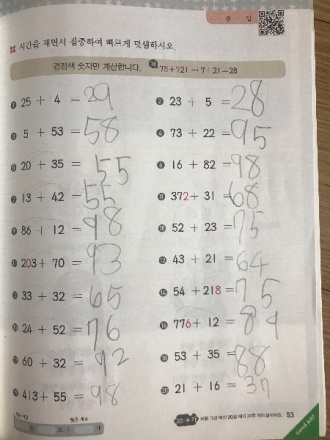 월 일
시간을 재면서 집중하여 빠르게 덧셈하시오.
검정색 숫자만 계산합니다. 예 78+721 → 7+21=28
1 25 + 4 = 29
2 23 + 5 = 28
3 5 + 53 = 58
4 73 + 22 = 95
5 20 + 35 = 55
6 16 + 82 = 98
7 13 + 42 = 55
8 372 + 31 = 68
9 86 + 12 = 98
10 52 + 23 = 75
11 203 + 70 = 93
12 43 + 21 = 64
13 33 + 32 = 65
14 54 + 218 = 75
15 24 + 52 = 76
16 776 + 12 = 89
17 60 + 32 = 92
18 53 + 35 = 88
19 413 + 55 = 98
20 21 + 16 = 37
맞은 개수
53
Good job!